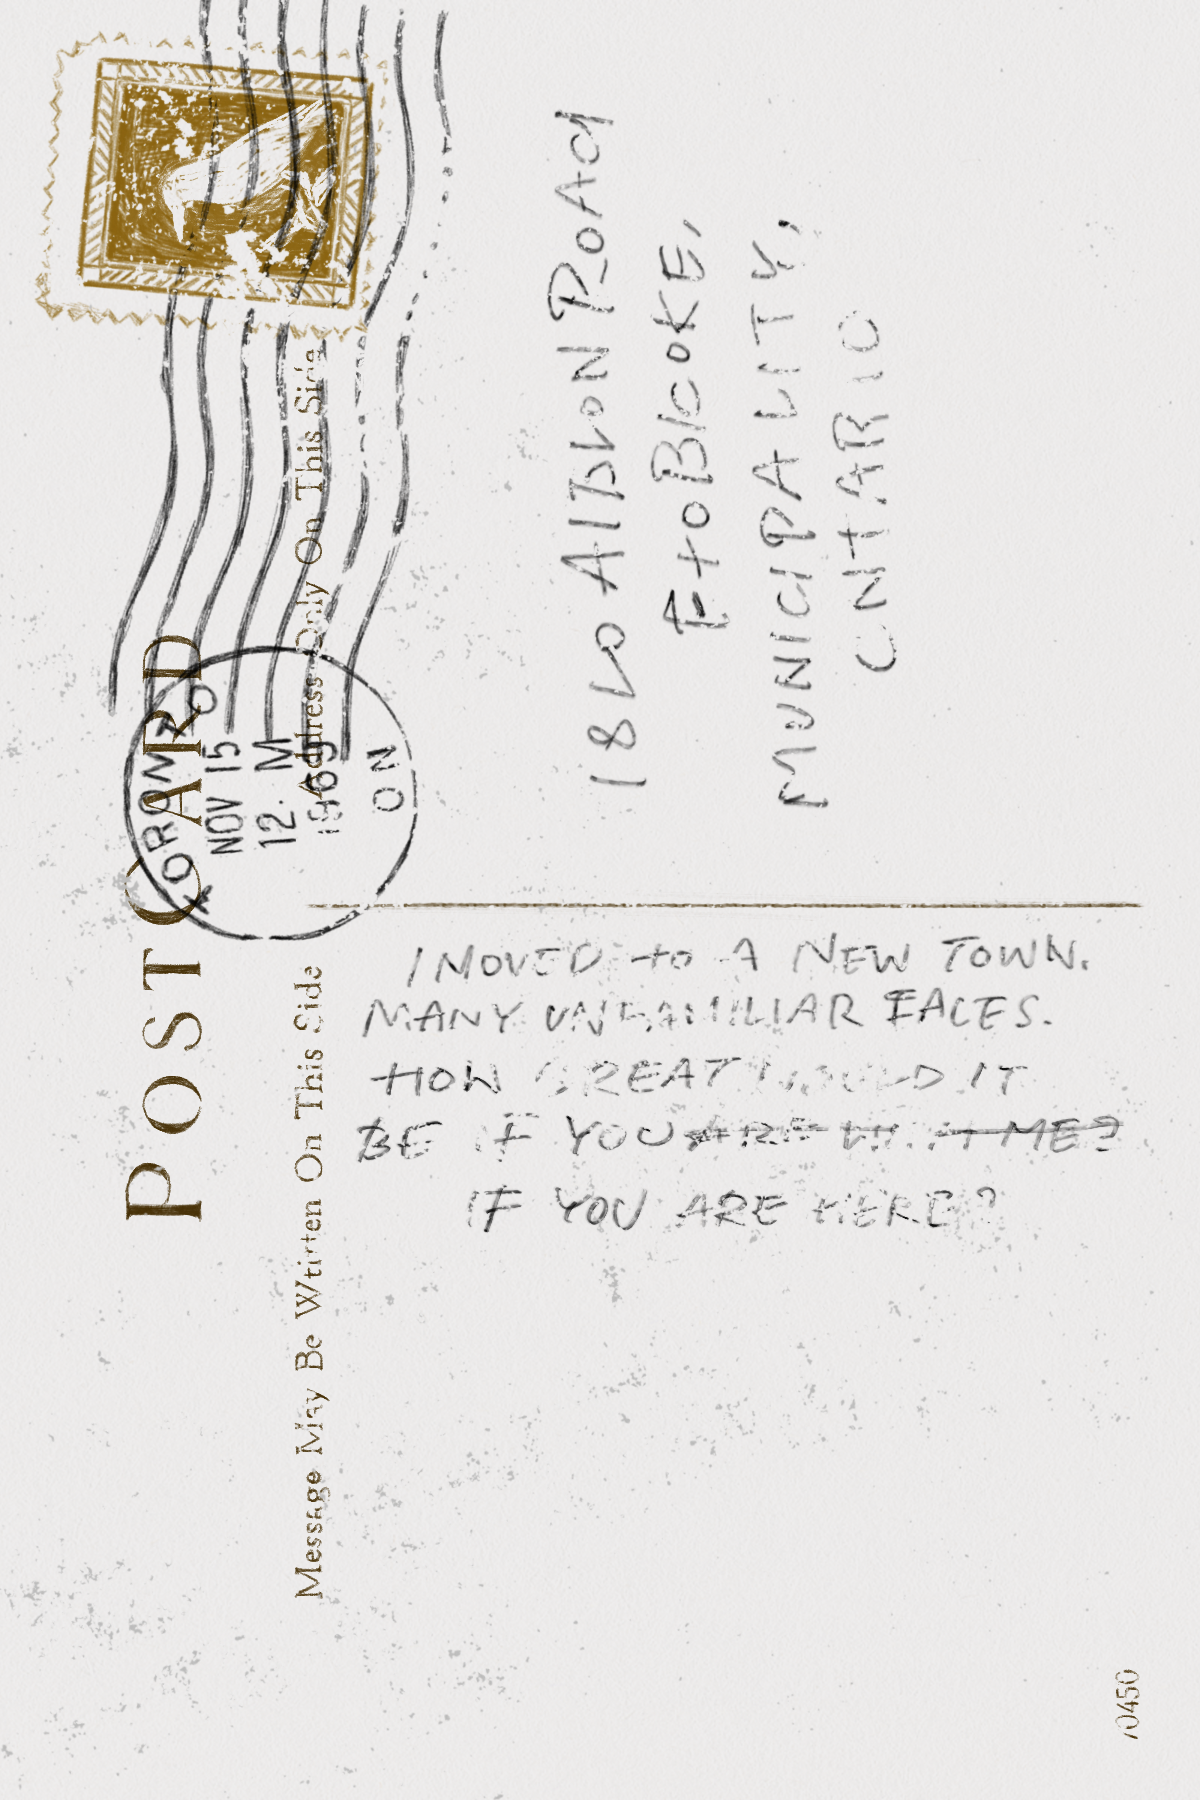 POST CARD
Message May Be Wtirten On This Side
Address Only On This Side
TORONTO
NOV 15
12. M
1969
ON
1820 AlBION ROAd
EtoBIcoKE,
MUNICIPALITY,
ONtARIO
I MOVED to A NEW TOWN.
MANY UNFAMILIAR FACES.
HOW GREAT WOULD IT
BE IF YOU ARE WITH ME?
IF YOU ARE HERE?
70450